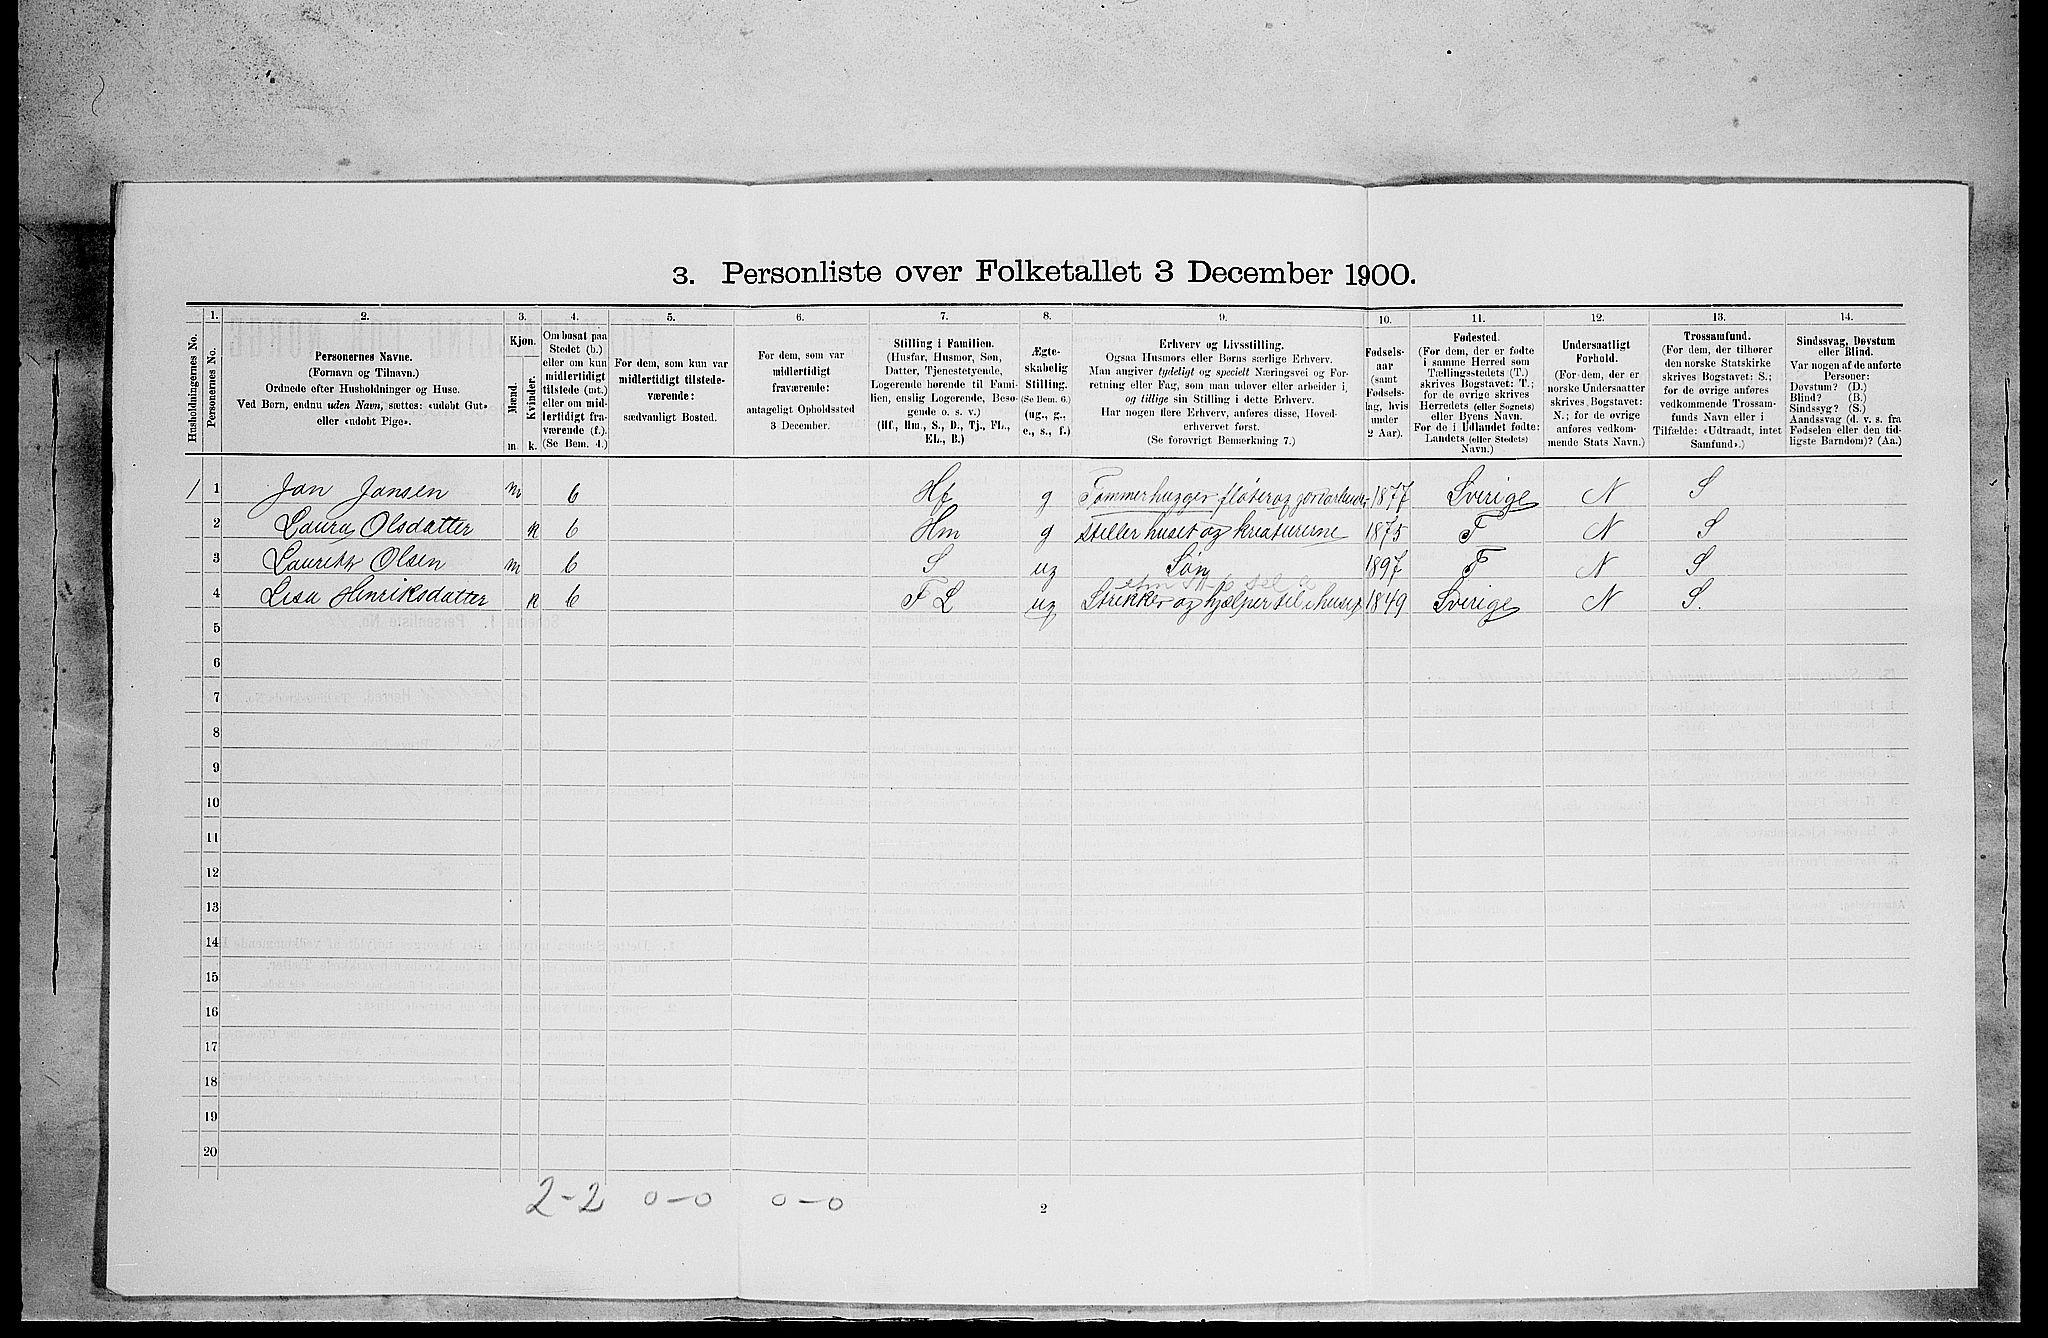 3. Personliste over Folketallet 3 December 1900.
Husholdningernes No.
1. Personernes No.
2. Personernes Navne. (Fornavn og Tilnavn.) Ordnede efter Husholdninger og Huse. Ved Børn, endnu uden Navn, sættes: «udøbt Gut» eller «udøbt Pige».
3. Kjøn. Mænd. m Kvinder. k.
4. Om bosat paa Stedet (b.) eller om kun midlertidigt tilstede (mt.) eller om midlertidigt fraværende (f.). (Se Bem. 4.)
5. For dem, som kun var midlertidigt tilstedeværende: sædvanligt Bosted.
6. For dem, som var midlertidigt fraværende: antageligt Opholdssted 3 December.
7. Stilling i Familien. (Husfar, Husmor, Søn, Datter, Tjenestetyende, Logerende hørende til Familien, enslig Logerende, Besøgende o. s. v.) (Hf., Hm., S., D., Tj., FL., EL., B.)
8. Ægteskabelig Stilling. (Se Bem. 6.) (ug., g., e., s., f.)
9. Erhverv og Livsstilling. Ogsaa Husmors eller Børns særlige Erhverv. Man angiver tydeligt og specielt Næringsvei og Forretning eller Fag, som man udøver eller arbeider i, og tillige sin Stilling i dette Erhverv. Har nogen flere Erhverv, anføres disse, Hovederhvervet først. (Se forøvrigt Bemærkning 7.)
10. Fødselsaar (samt Fødselsdag, hvis under 2 Aar).
11. Fødested. (For dem, der er fødte i samme Herred som Tællingsstedets (T.) skrives Bogstavet: T.; for de øvrige skrives Herredets (eller Sognets) eller Byens Navn. For de i Udlandet fødte: Landets (eller Stedets) Navn.)
12. Undersaatligt Forhold. (For dem, der er norske Undersaatter skrives Bogstavet: N.; for de øvrige anføres vedkommende Stats Navn.)
13. Trossamfund. (For dem, der tilhører den norske Statskirke skrives Bogstavet: S.; for de øvrige anføres vedkommende Trossamfunds Navn eller i Tilfælde: «Udtraadt, intet Samfund».)
14. Sindssvag, Døvstum eller Blind. Var nogen af de anførte Personer: Døvstum? (D.) Blind? (B.) Sindssyg? (S.) Aandssvag (d. v. s. fra Fødselen eller den tidligste Barndom)? (Aa.)
1 1 Jan Jansen m b Hf g Tømmerhugger, fløter og jordarbeider 1877 Sverige N S
2 Laura Olsdatter k b Hm g steller huset og kreaturerne 1875 T N S
3 Lauretz Olsen m b S ug Søn 1897 T N S
4 Lisa Henriksdatter k b F L ug Strikker og hjælper til i huset 1849 Sverige N S.
5
6
7
8
9
10
11
12
13
14
15
16
17
18
19
20
2-2 0-0 0-0
2